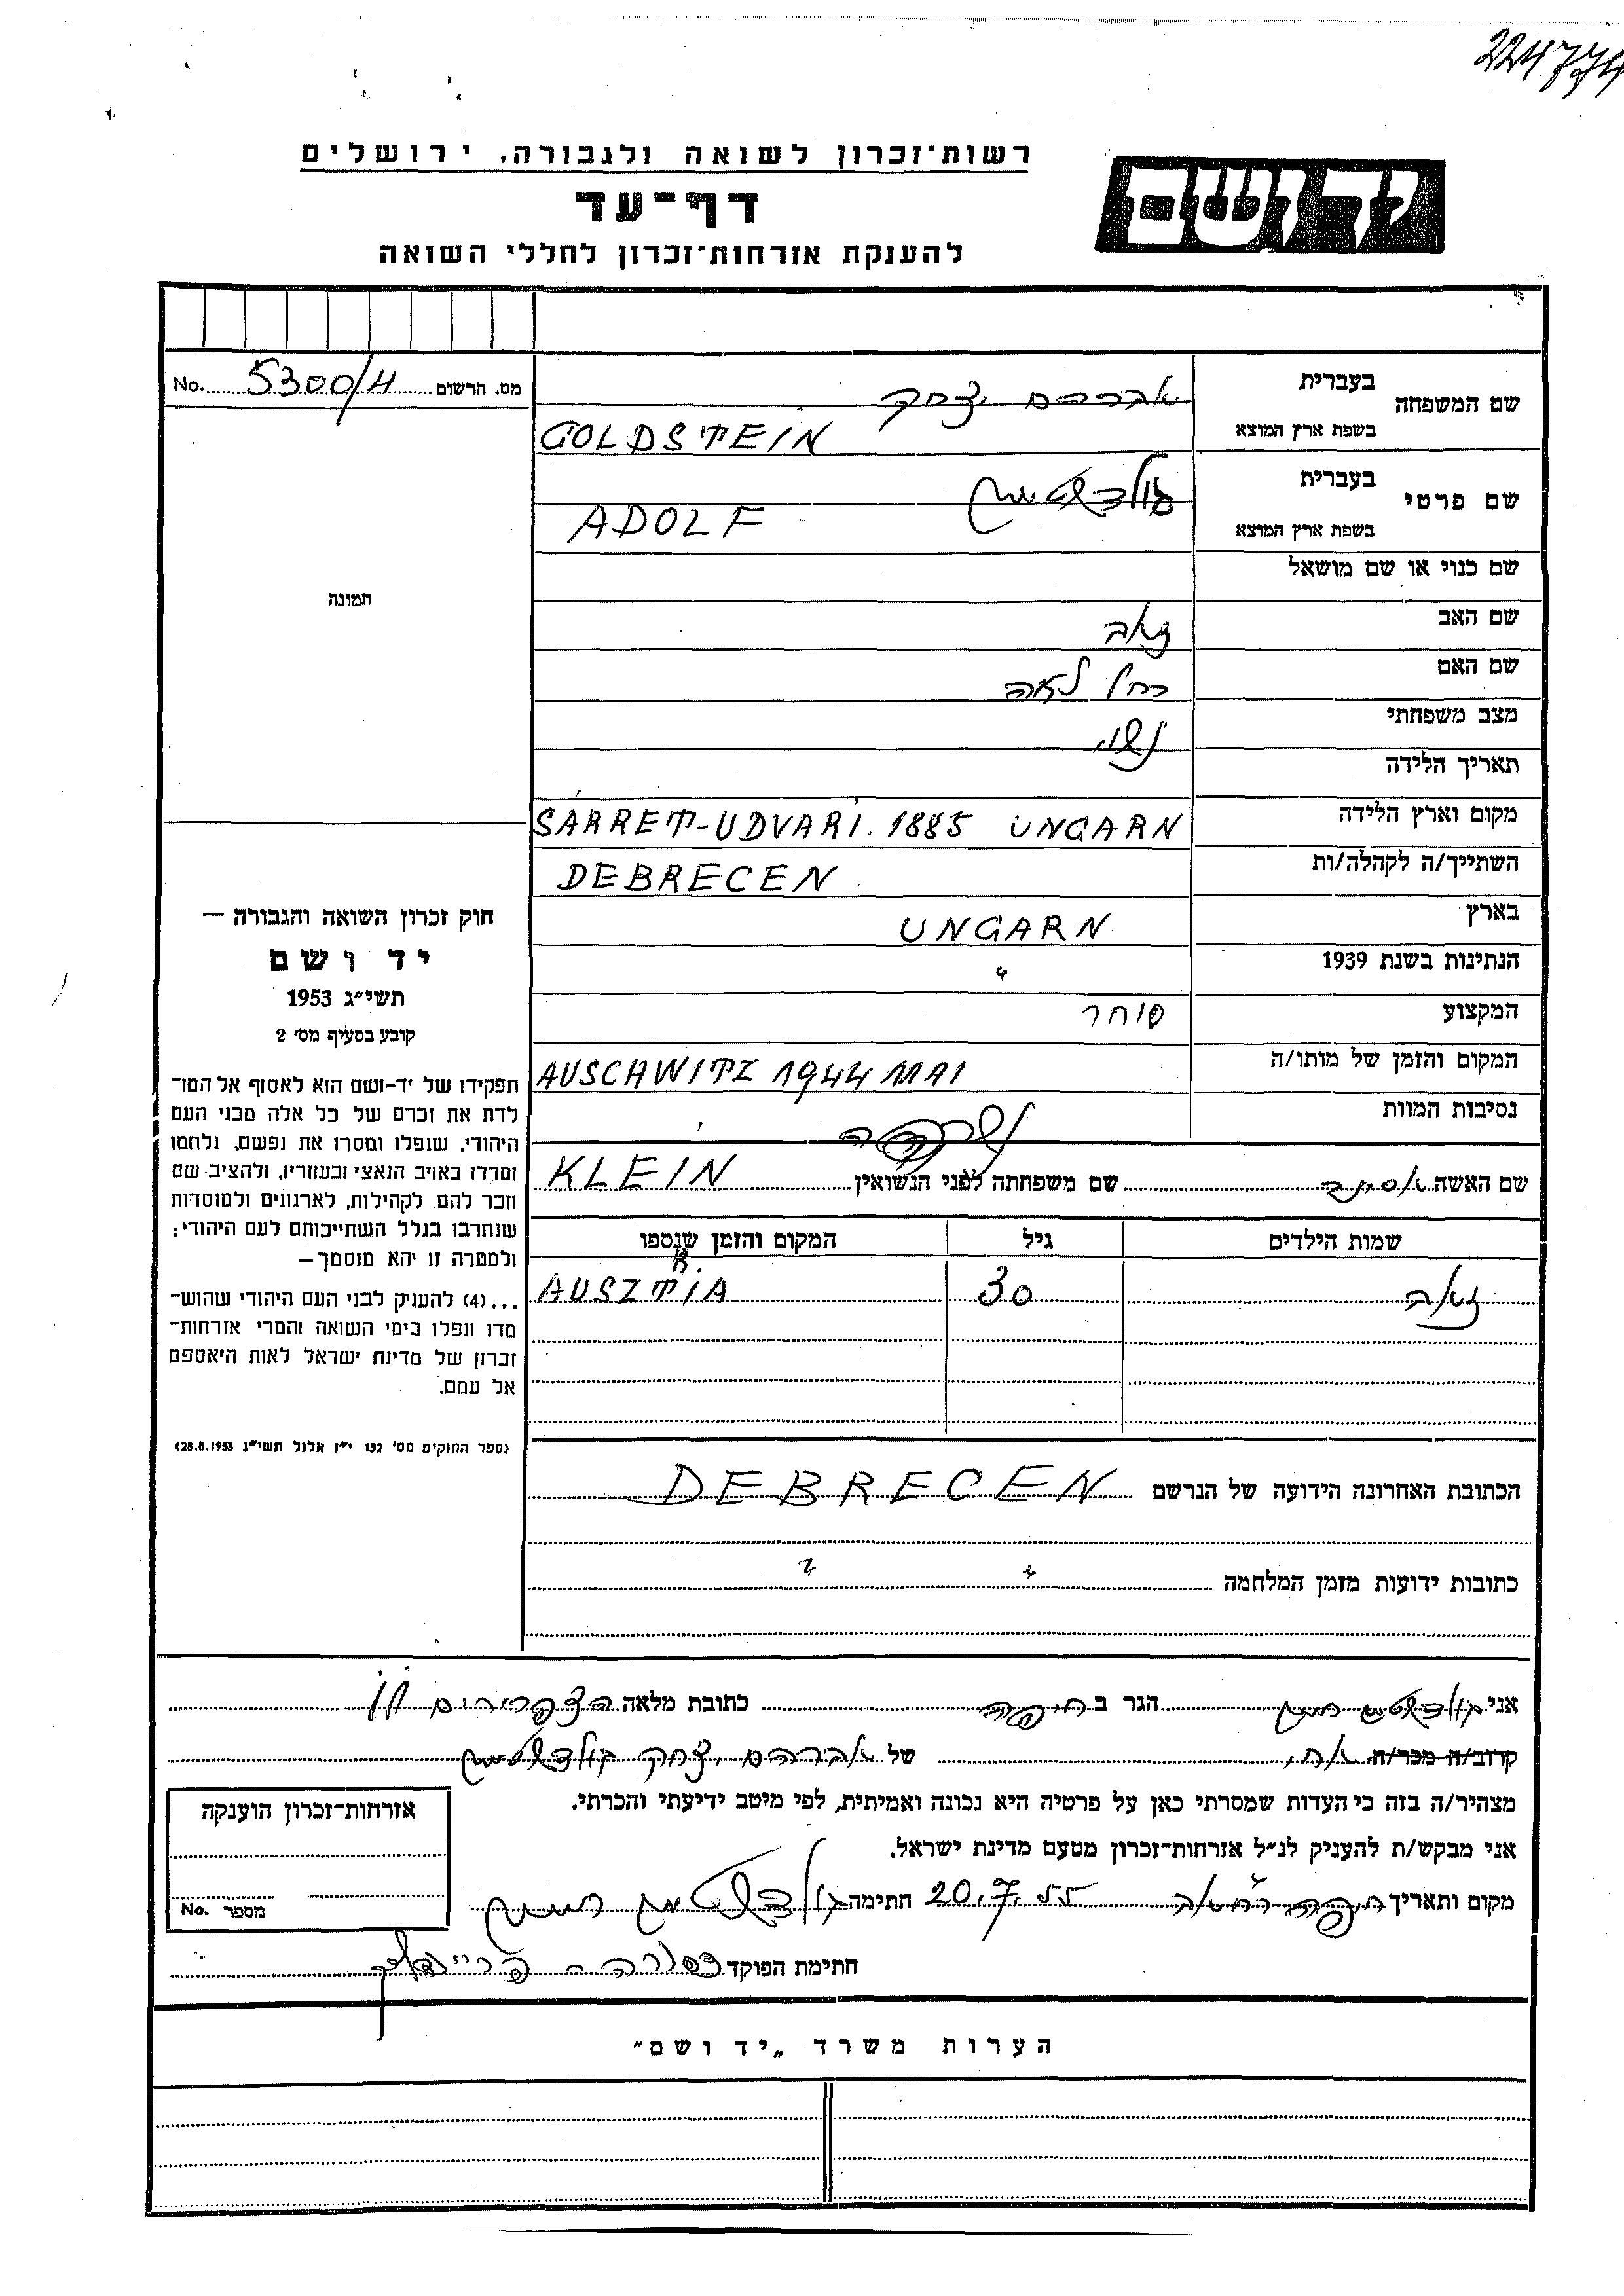 224774
רשות־זכרון לשואה ולגבורה, ירושלים
יד ושם
דף־עד
להענקת אזרחות־זכרון לחללי השואה
מס. הרשום No. 5300/4
שם המשפחה בעברית אברהם יצחק
בשפת ארץ המוצא GOLDSTEIN
שם פרטי בעברית גולדשטיין
בשפת ארץ המוצא ADOLF
שם כנוי או שם מושאל
שם האב זאב
שם האם רחל לאה
מצב משפחתי נשוי
תאריך הלידה
מקום וארץ הלידה SÁRRET-UDVARI. 1885 UNGARN
השתייך/ה לקהלה/ות DEBRECEN
בארץ UNGARN
הנתינות בשנת 1939 "
המקצוע סוחר
המקום והזמן של מותו/ה AUSCHWITZ 1944 MAI
נסיבות המוות
תמונה
חוק זכרון השואה והגבורה —
יד ושם
תשי"ג 1953
קובע בסעיף מס' 2
תפקידו של יד-ושם הוא לאסוף אל המו־
לדת את זכרם של כל אלה מבני העם
היהודי, שנפלו ומסרו את נפשם, נלחמו
ומרדו באויב הנאצי ובעוזריו, ולהציב שם
וזכר להם לקהילות, לארגונים ולמוסדות
שנחרבו בגלל השתייכותם לעם היהודי;
ולמטרה זו יהא מוסמך —
...(4) להעניק לבני העם היהודי שהוש־
מדו ונפלו בימי השואה והמרי אזרחות־
זכרון של מדינת ישראל לאות היאספם
אל עמם.
(ספר החוקים מס' 132 י"ז אלול תשי"ג 28.8.1953)
שם האשה אסתר שם משפחתה לפני הנשואין KLEIN
שמות הילדים גיל המקום והזמן שנספו
זאב 30 AUSZTRIA
הכתובת האחרונה הידועה של הנרשם DEBRECEN
כתובות ידועות מזמן המלחמה " "
אני גולדשטיין הגר ב חיפה כתובת מלאה
קרוב/ה מכר/ה אחי של אברהם יצחק גולדשטיין
מצהיר/ה בזה כי העדות שמסרתי כאן על פרטיה היא נכונה ואמיתית, לפי מיטב ידיעתי והכרתי.
אני מבקש/ת להעניק לנ"ל אזרחות־זכרון מטעם מדינת ישראל.
מקום ותאריך חיפה 20.7.55 חתימה גולדשטיין
חתימת הפוקד
אזרחות־זכרון הוענקה
מספר No.
הערות משרד „יד ושם"